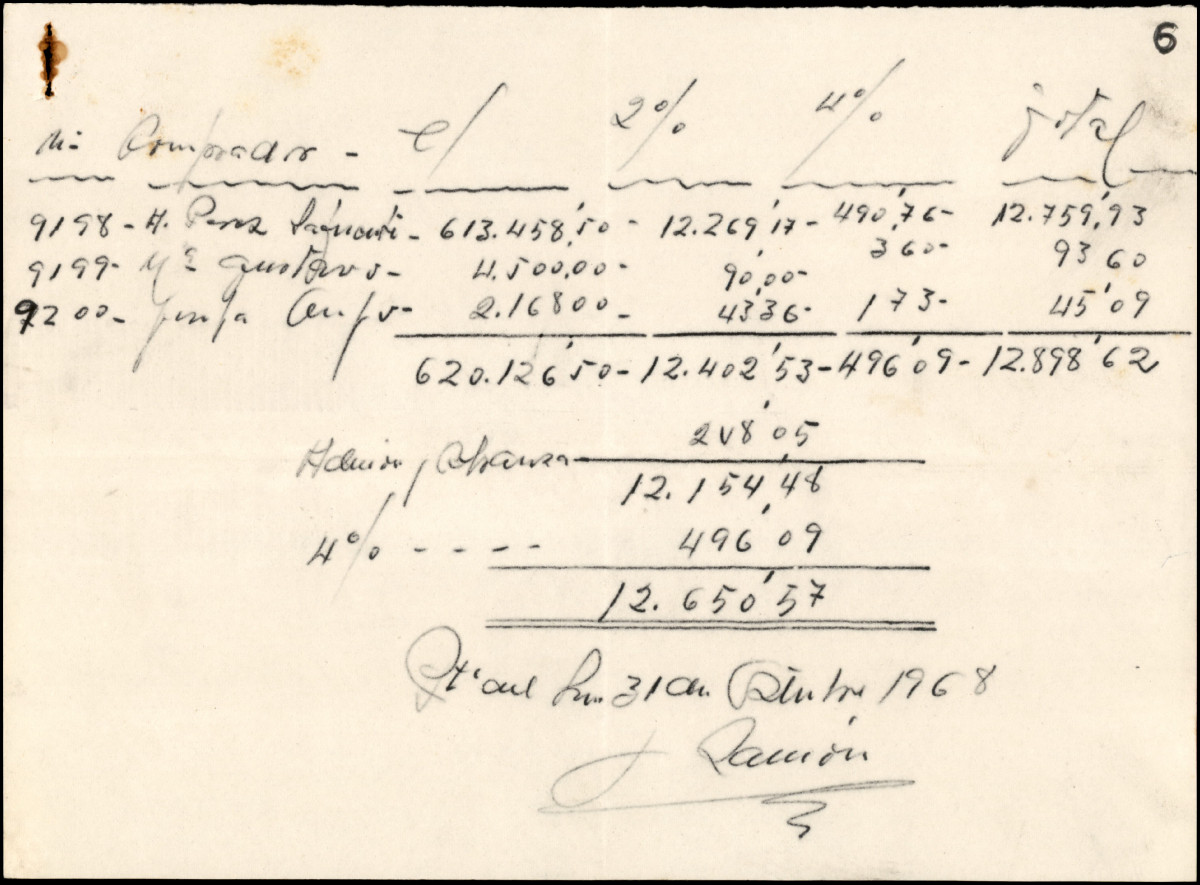 6
Nº Comprador - C/ 2% 4% Total
9198 - H. Perez - 613.458,50 - 12.269'17 - 490'76 - 12.759'93
9199 - Mª Gustavo - 4.500,00 - 90'00 - 3 60 - 93 60
9200 - 2.168 00 - 43'36 - 1 73 - 45'09
620.126'50 - 12.402'53 - 496'09 - 12.898'62
Admion y Cobranza 248'05
12.154,48
4% - - - - 496'09
12.650'57
Ptº del 31 de Octubre 1968
Ramón